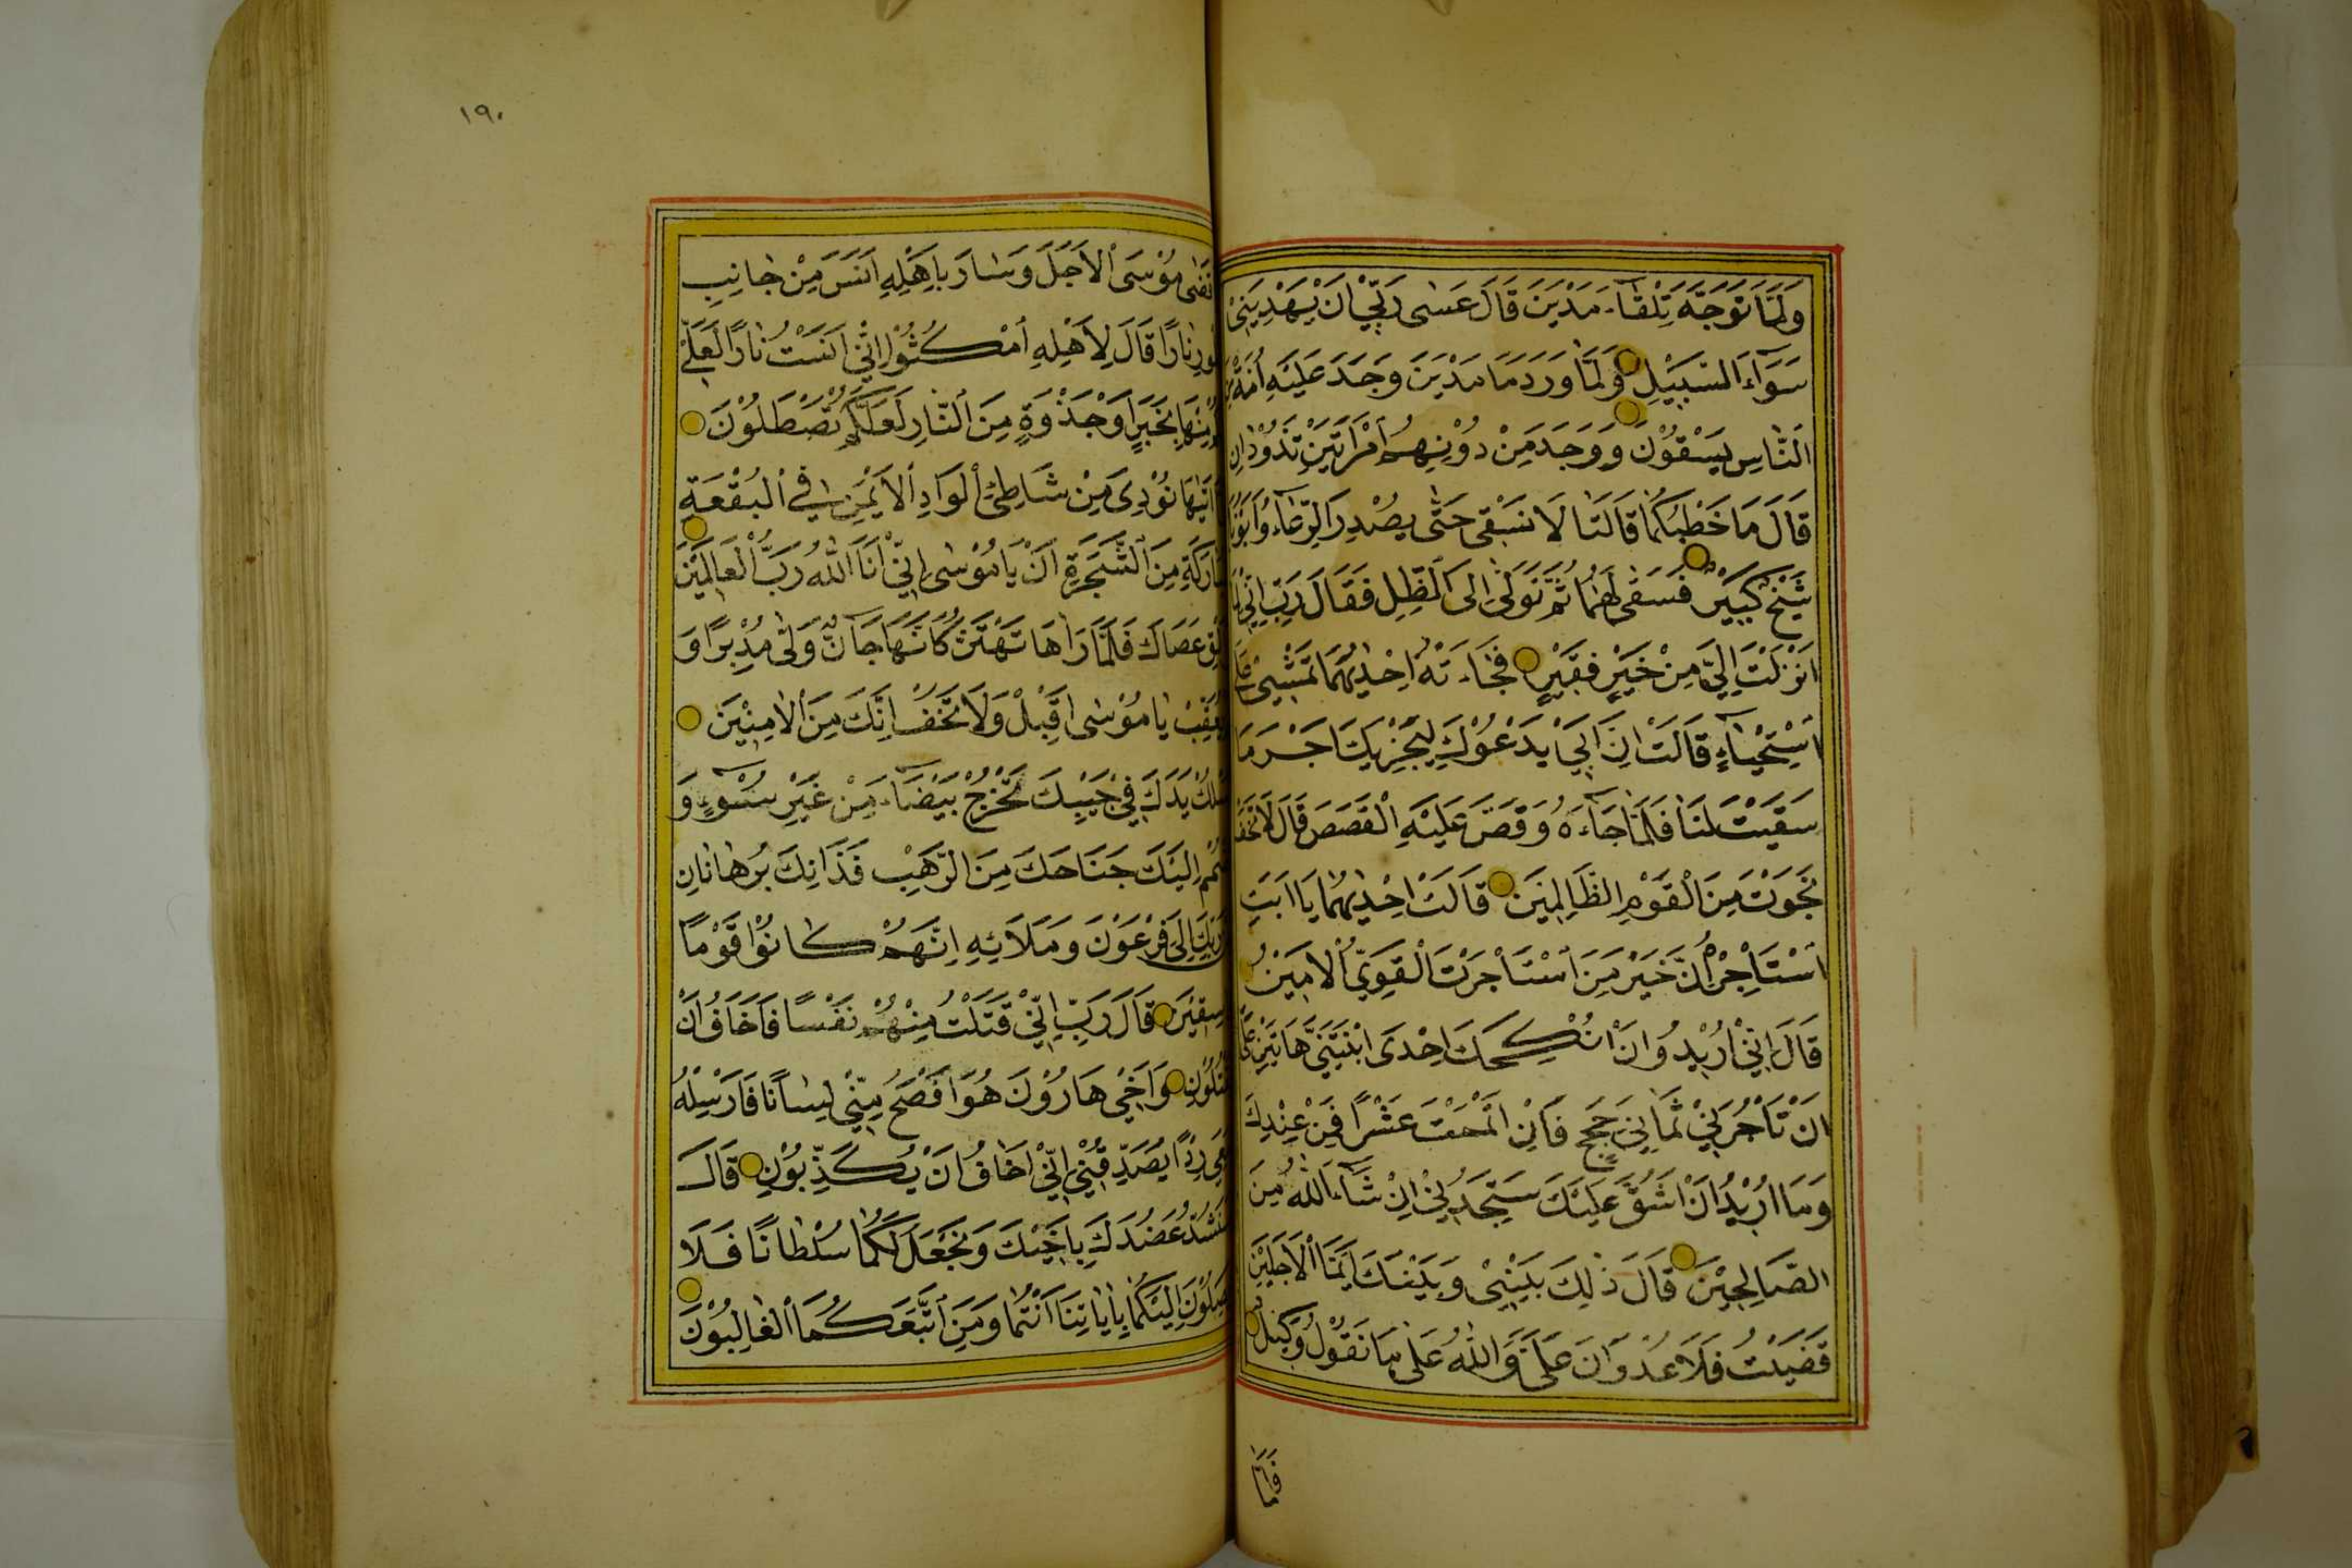 وَلَمَّا تَوَجَّهَ تِلْقَاءَ مَدْيَنَ قَالَ عَسٰى رَبِّيْ اَنْ يَهْدِيَنِيْ
سَوَاءَ السَّبِيْلِ وَلَمَّا وَرَدَ مَاءَ مَدْيَنَ وَجَدَ عَلَيْهِ اُمَّةً مِنَ
النَّاسِ يَسْقُوْنَ وَوَجَدَ مِنْ دُوْنِهِمُ امْرَاَتَيْنِ تَذُوْدَانِ
قَالَ مَا خَطْبُكُمَا قَالَتَا لَا نَسْقِى حَتّٰى يُصْدِرَ الرِّعَاءُ وَاَبُوْنَا
شَيْخٌ كَبِيْرٌ فَسَقٰى لَهُمَا ثُمَّ تَوَلّٰى اِلَى الظِّلِّ فَقَالَ رَبِّ اِنِّيْ لِمَا
اَنْزَلْتَ اِلَيَّ مِنْ خَيْرٍ فَقِيْرٍ فَجَاءَتْهُ اِحْدٰيهُمَا تَمْشِيْ عَلَى
اسْتِحْيَاءٍ قَالَتْ اِنَّ اَبِيْ يَدْعُوْكَ لِيَجْزِيَكَ اَجْرَ مَا
سَقَيْتَ لَنَا فَلَمَّا جَاءَهُ وَقَصَّ عَلَيْهِ الْقَصَصَ قَالَ لَا تَخَفْ
نَجَوْتَ مِنَ الْقَوْمِ الظَّالِمِيْنَ قَالَتْ اِحْدٰيهُمَا يَا اَبَتِ
اسْتَأْجِرْهُ اِنَّ خَيْرَ مَنِ اسْتَأْجَرْتَ الْقَوِيُّ الْاَمِيْنُ
قَالَ اِنِّيْ اُرِيْدُ اَنْ اُنْكِحَكَ اِحْدَى ابْنَتَيَّ هَاتَيْنِ عَلٰى
اَنْ تَأْجُرَنِيْ ثَمَانِيَ حِجَجٍ فَاِنْ اَتْمَمْتَ عَشْرًا فَمِنْ عِنْدِكَ
وَمَا اُرِيْدُ اَنْ اَشُقَّ عَلَيْكَ سَتَجِدُنِيْ اِنْ شَاءَ اللهُ مِنَ
الصَّالِحِيْنَ قَالَ ذٰلِكَ بَيْنِيْ وَبَيْنَكَ اَيَّمَا الْاَجَلَيْنِ
قَضَيْتُ فَلَا عُدْوَانَ عَلَيَّ وَاللهُ عَلٰى مَا نَقُوْلُ وَكِيْلٌ
فَلَمَّا
١٩٠
قَضٰى مُوْسَى الْاَجَلَ وَسَارَ بِاَهْلِهِ اٰنَسَ مِنْ جَانِبِ
الطُّوْرِ نَارًا قَالَ لِاَهْلِهِ امْكُثُوْا اِنِّيْ اٰنَسْتُ نَارًا لَعَلِّيْ
مِنْهَا بِخَبَرٍ اَوْ جَذْوَةٍ مِنَ النَّارِ لَعَلَّكُمْ تَصْطَلُوْنَ
اَتٰيهَا نُوْدِىَ مِنْ شَاطِئِ الْوَادِ الْاَيْمَنِ فِي الْبُقْعَةِ
الْمُبَارَكَةِ مِنَ الشَّجَرَةِ اَنْ يَا مُوْسٰى اِنِّيْ اَنَا اللهُ رَبُّ الْعَالَمِيْنَ
اَلْقِ عَصَاكَ فَلَمَّا رَاٰهَا تَهْتَزُّ كَاَنَّهَا جَانٌّ وَلّٰى مُدْبِرًا وَ
يُعَقِّبْ يَا مُوْسٰى اَقْبِلْ وَلَا تَخَفْ اِنَّكَ مِنَ الْاٰمِنِيْنَ
اُسْلُكْ يَدَكَ فِيْ جَيْبِكَ تَخْرُجْ بَيْضَاءَ مِنْ غَيْرِ سُوْءٍ وَ
اضْمُمْ اِلَيْكَ جَنَاحَكَ مِنَ الرَّهْبِ فَذَانِكَ بُرْهَانَانِ
رَبِّكَ اِلٰى فِرْعَوْنَ وَمَلَائِهِ اِنَّهُمْ كَانُوْا قَوْمًا
فَاسِقِيْنَ قَالَ رَبِّ اِنِّيْ قَتَلْتُ مِنْهُمْ نَفْسًا فَاَخَافُ اَنْ
يَقْتُلُوْنِ وَاَخِيْ هَارُوْنُ هُوَ اَفْصَحُ مِنِّيْ لِسَانًا فَاَرْسِلْهُ
مَعِيَ رِدْءًا يُصَدِّقُنِيْ اِنِّيْ اَخَافُ اَنْ يُكَذِّبُوْنِ قَالَ
سَنَشُدُّ عَضُدَكَ بِاَخِيْكَ وَنَجْعَلُ لَكُمَا سُلْطَانًا فَلَا
يَصِلُوْنَ اِلَيْكُمَا بِاٰيَاتِنَا اَنْتُمَا وَمَنِ اتَّبَعَكُمَا الْغَالِبُوْنَ